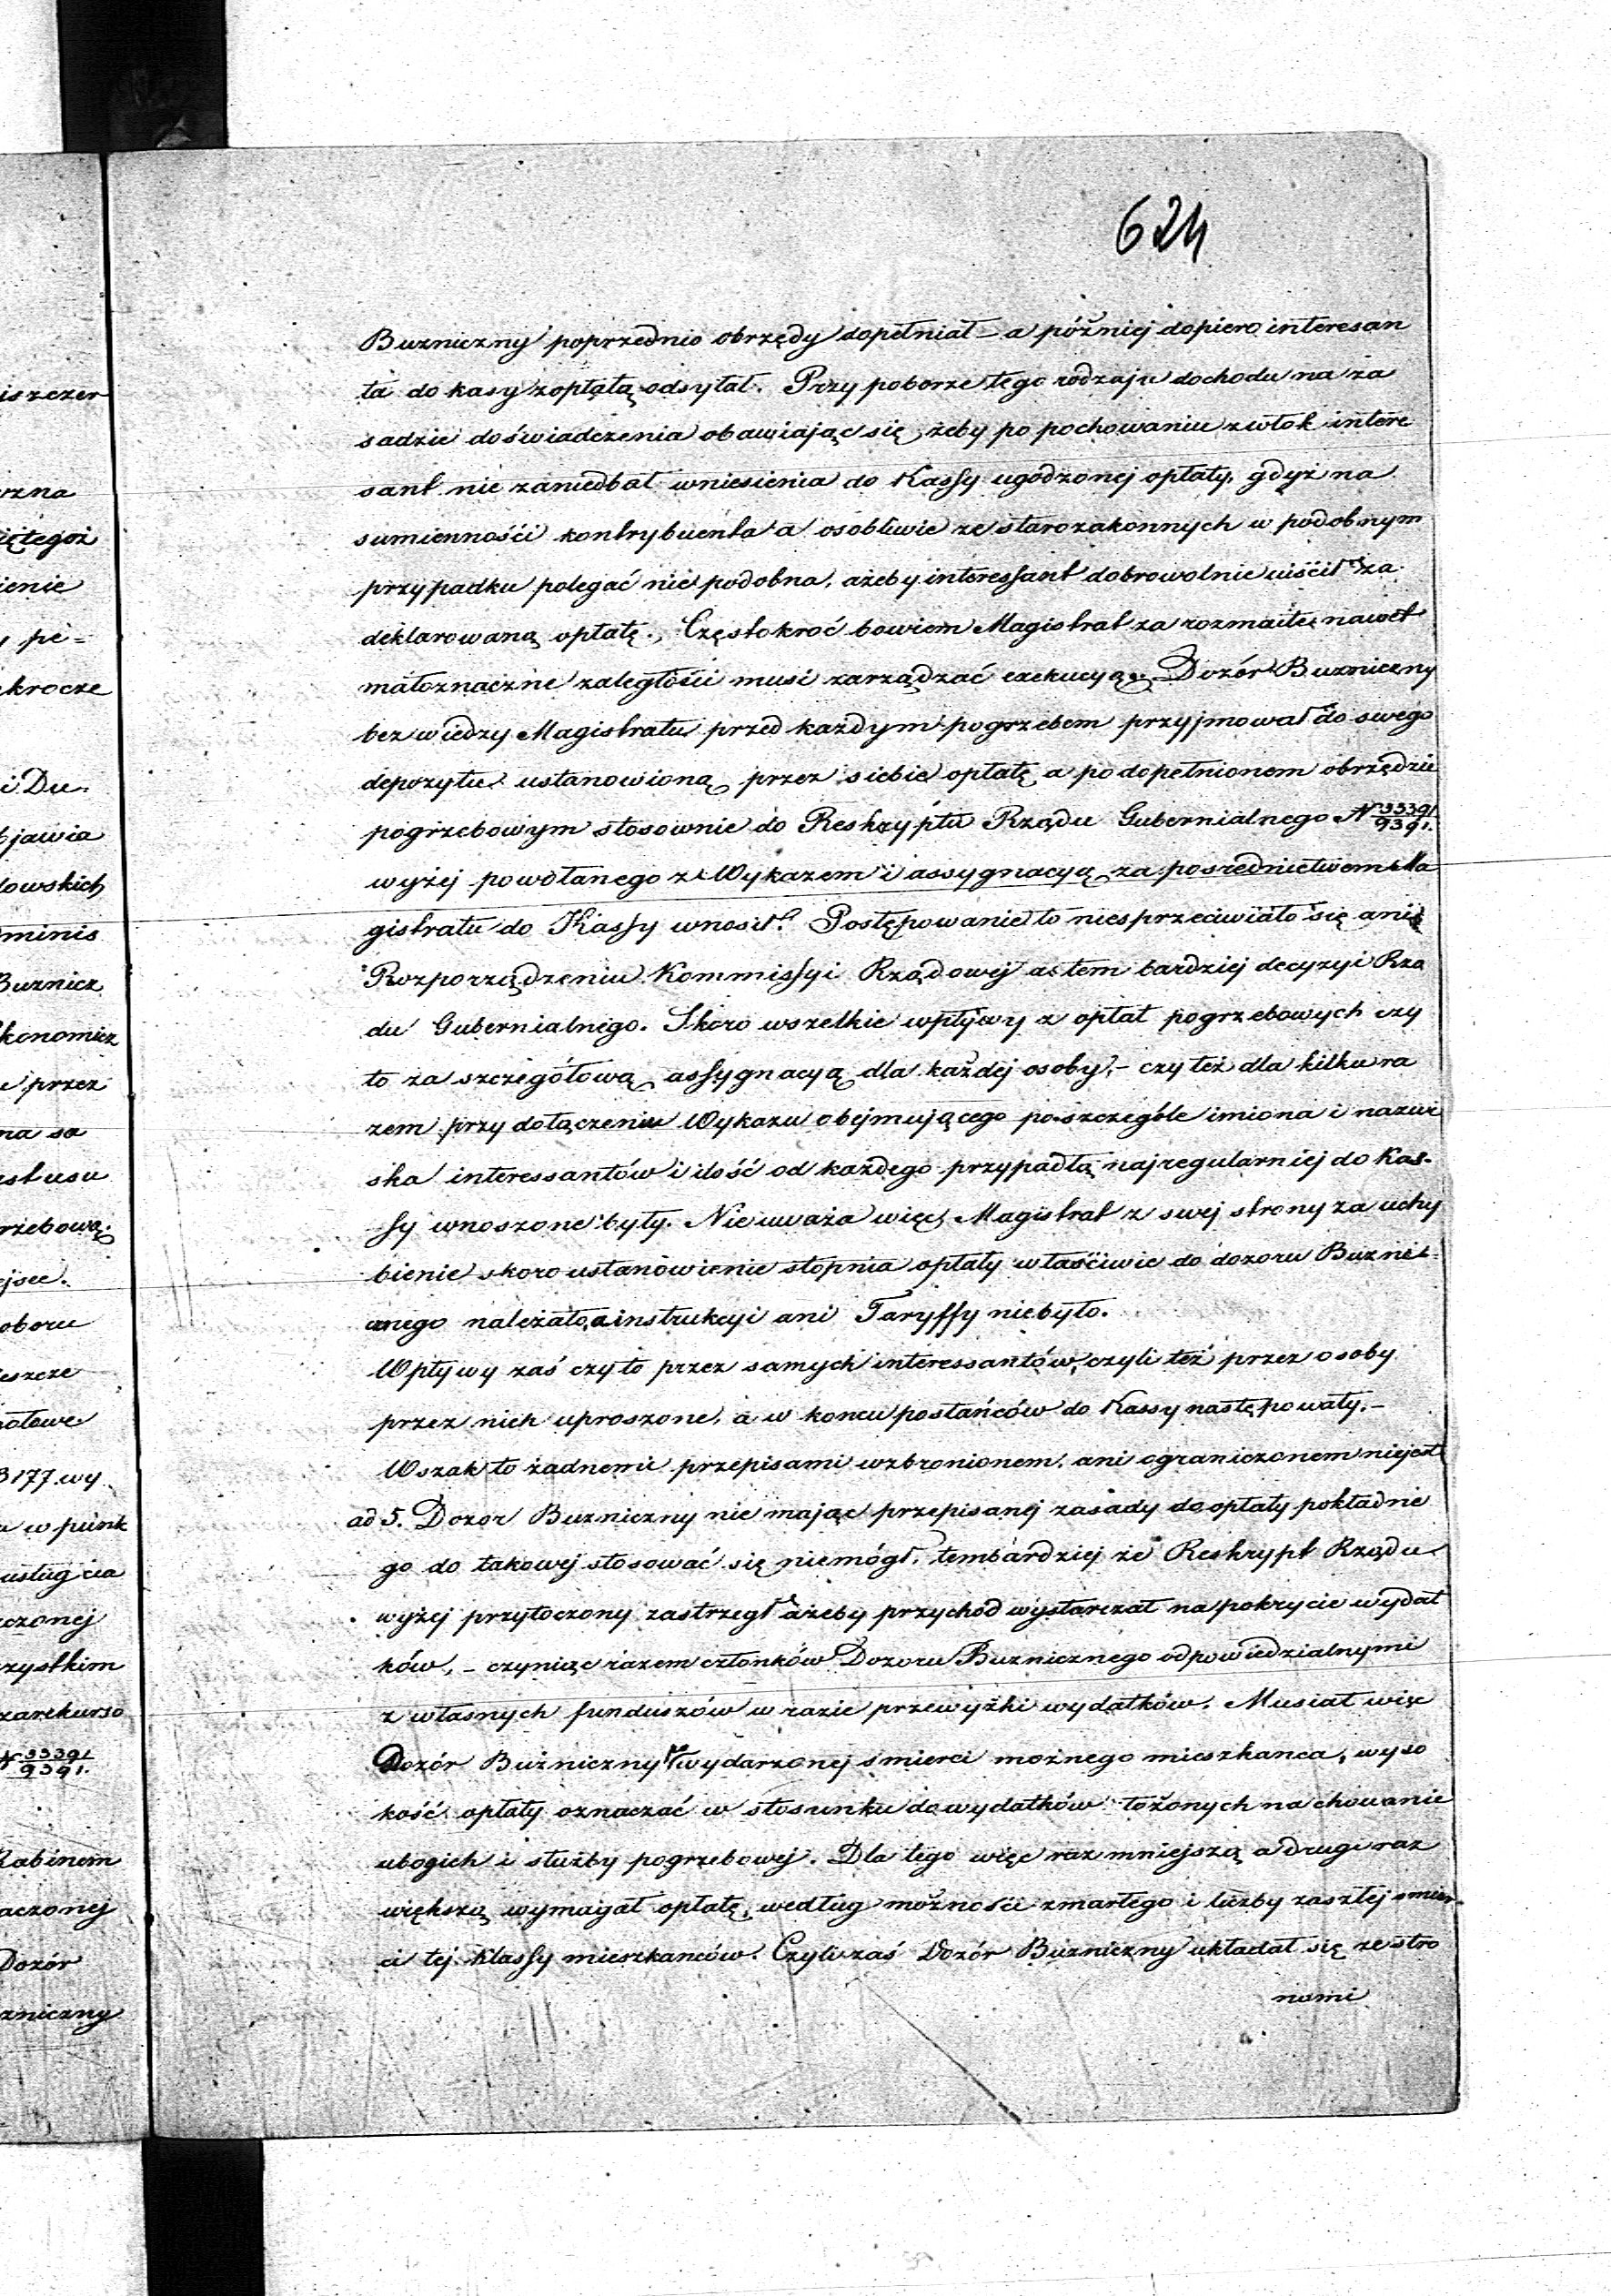 624
Buzniczny poprzednio obrzędy dopełniał – a później dopiero interesan
ta do kasy z opłatą odsyłał. Przy poborze tego rodzaju dochodu na za
sadzie doświadczenia obawiając się, żeby po pochowaniu zwłok intere
sant nie zaniedbał wniesienia do Kassy ugodzonej opłaty, gdyż na
sumienności kontrybuenta a osobliwie ze starozakonnych w podobnym
przypadku polegać nie podobna, ażeby interessant dobrowolnie uiścił za
deklarowaną opłatę. Częstokroć bowiem Magistrat za rozmaite nawet
małoznaczne zaległości musi zarządzać exekucyą. Dozór Buzniczny
bez wiedzy Magistratu przed każdym pogrzebem przyjmował do swego
depozytu ustanowioną przez siebie opłatę a po dopełnionem obrzędzie
pogrzebowym stosownie do Reskryptu Rządu Gubernialnego N 33391/9391.
wyżej powołanego z Wykazem i assygnacyą za pośrednictwem Ma
gistratu do Kassy wnosił. Postępowanie to niesprzeciwiało się ani
Rozporządzeniu Kommissyi Rządowej a tem bardziej decyzyi Rzą
du Gubernialnego. Skoro wszelkie wpływy z opłat pogrzebowych czy
to za szczegółową assygnacyą dla każdej osoby, – czy też dla kilku ra
zem przy dołączeniu Wykazu obejmującego poszczególe imiona i nazwi
ska interessantów i ilość od każdego przypadłą najregularniej do Kas-
sy wnoszone były. Nie uważa więc Magistrat z swej strony za uchy
bienie skoro ustanowienie stopnia opłaty właściwie do dozoru Buzni-
cznego należało, a instrukcyi ani Taryffy niebyło.
Wpływy zaś czy to przez samych interessantów, czyli też przez osoby
przez nich uproszone, a w końcu posłańców do Kassy następowały. –
Wszak to żadnemi przepisami wzbronionem, ani ograniczonem niejest
ad 5. Dozór Buzniczny nie mając przepisanej zasady do opłaty pokładne
go do takowej stosować się niemógł, tembardziej że Reskrypt Rządu
wyżej przytoczony zastrzegł ażeby przychód wystarczał na pokrycie wydat
ków, – czyniąc razem członków Dozoru Buznicznego odpowiedzialnymi
z własnych funduszów w razie przewyżki wydatków. Musiał więc
Dozór Buźniczny po wydarzonej śmierci możnego mieszkańca, wyso
kość opłaty oznaczać w stosunku do wydatków łożonych na chowanie
ubogich i służby pogrzebowej. Dla tego więc raz mniejszą a drugi raz
większą wymagał opłatę, według możności zmarłego i liczby zaszłej śmier-
ci tej klassy mieszkańców. Czyli zaś Dozór Buzniczny układał się ze stro
nami
iszczer
czna
iętegoż
ienie
y pe=
krocze
i Du.
bjawia
dowskich
minis
Buznicz
konomicz
e przez
na sa
usłusu
rzebową.
ejsce.
oboru
eszcze
ołowe
3177 wy
a w punk
usług cia
czonej
czystkim
zarekurso
N 33391/9391.
Rabinem
aczonej
Dozór
zniczny